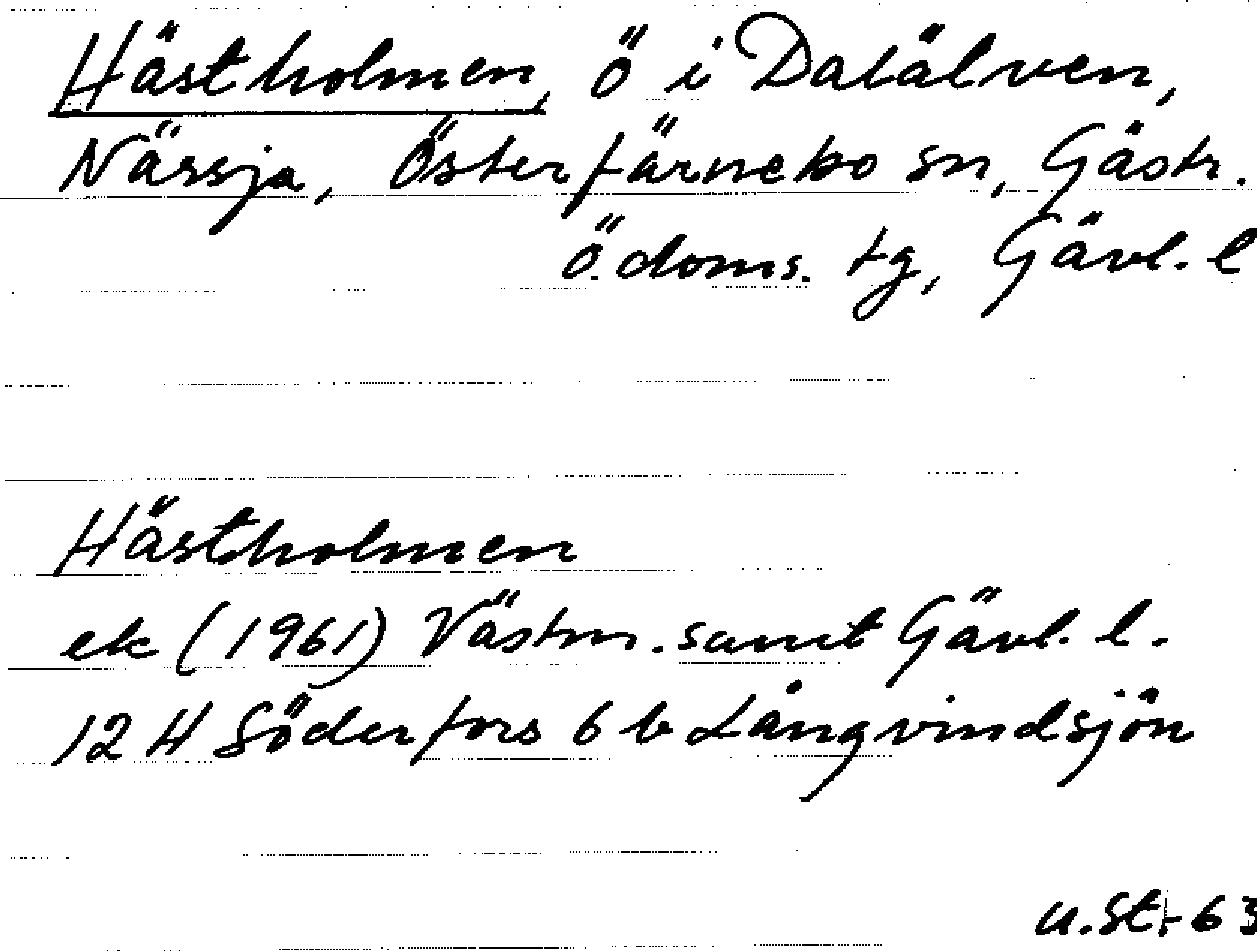 Hästholmen, ö i Dalälven,
Närsja, Österfärnebo sn, Gästr.
Ö. doms. tg, Gävl. l
Hästholmen
ek (1961) Västm. samt Gävl. l.
12 H Söderfors 6 b Långvindsjön
u.St.-63